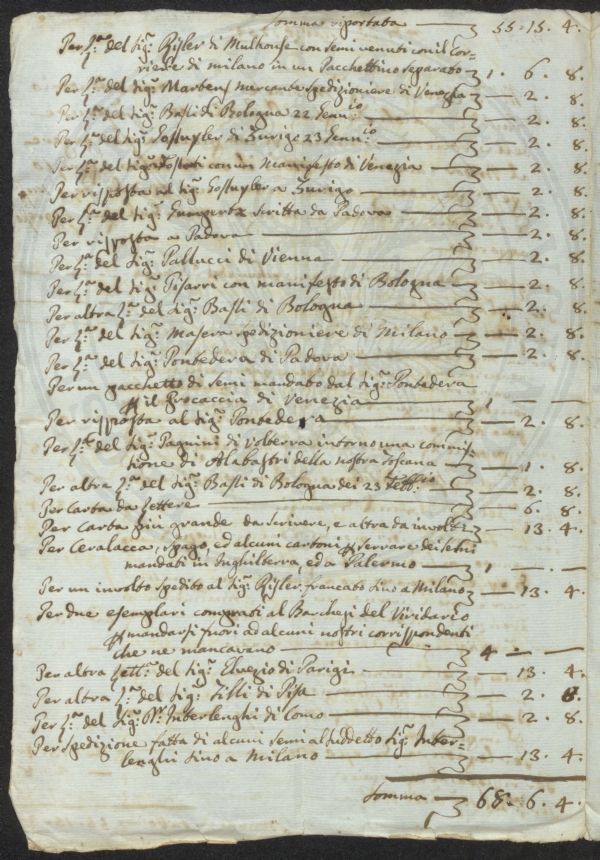 Somma riportata — 55. 15. 4.
Per L.ra del Sig.r Risler di Mulhouse con semi venuti con il Cor=
riere di Milano in un Pacchettino separato — 1. 6. 8.
Per L.ra del Sig.r Martens mercante spedizioniere di Venezia — 2. 8.
Per L.ra del Sig.r Bassi di Bologna 22 Genn.io — 2. 8.
Per L.ra del Sig.r di Zurigo 23 Genn.io — 2. 8.
Per L.ra del Sig.r con un Manifesto di Venezia — 2. 8.
Per risposta al Sig.r a Zurigo — 2. 8.
Per L.ra del Sig.r scritta da Padova — 2. 8.
Per risposta a Padova — 2. 8.
Per L.ra del Sig.r Pallucci di Vienna — 2. 8.
Per L.ra del Sig.r Pisarri con manifesto di Bologna — 2. 8.
Per altra L.ra del Sig.r Bassi di Bologna — 2. 8.
Per L.ra del Sig.r Masera spedizioniere di Milano — 2. 8.
Per L.ra del Sig.r Pontedera di Padova — 2. 8.
Per un pacchetto di semi mandato dal Sig.r Pontedera
il Procaccia di Venezia — 1 —
Per risposta al Sig.r Pontedera — 2. 8.
Per L.ra del Sig.r Pagnini di Volterra intorno una commis=
tione di Alabastri della nostra Toscana — 1. 8.
Per altra L.ra del Sig.r Bassi di Bologna dei 23 Febb.io — 2. 8.
Per Carta da Lettere — 6. 8.
Per Carta più grande da scrivere, e altra da involti — 13. 4.
Per Ceralacca, spago, ed alcuni cartoni serrare dei semi
mandati in Inghilterra, ed a Palermo — 1 —
Per un involto spedito al Sig.r Risler francato sino a Milano — 13. 4.
Per due esemplari comprati al Barchesi del Viridario
mandarsi fuori ad alcuni nostri corrispondenti
che ne mancavano — 4 — —
Per altra Lett.a del Sig.r di Parigi — 13. 4.
Per altra L.ra del Sig.r Tilli di Pisa — 2. 8.
Per L.ra del Sig.r Interlenghi di Como — 2. 8.
Per spedizione fatta di alcuni semi al suddetto Sig.r Inter=
lenghi sino a Milano — 13. 4.
Somma — 68. 6. 4.